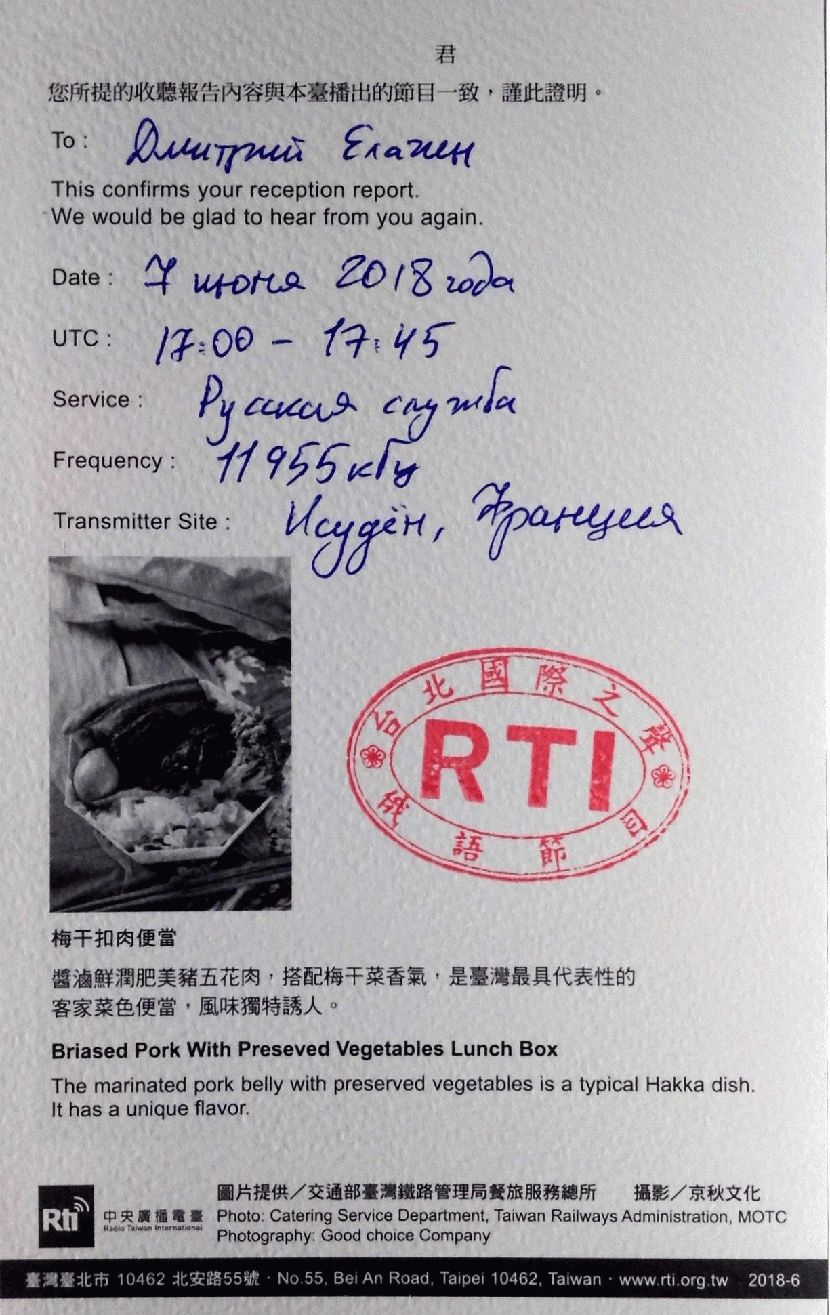 君
您所提的收聽報告內容與本臺播出的節目一致，謹此證明。
To : Дмитрий Елагин
This confirms your reception report.
We would be glad to hear from you again.
Date : 7 июня 2018 года
UTC : 17:00 – 17:45
Service : Русская служба
Frequency : 11955 кГц
Transmitter Site : Исудён, Франция
台北國際之聲
RTI
俄語節目
梅干扣肉便當
醬滷鮮潤肥美豬五花肉，搭配梅干菜香氣，是臺灣最具代表性的
客家菜色便當，風味獨特誘人。
Briased Pork With Preseved Vegetables Lunch Box
The marinated pork belly with preserved vegetables is a typical Hakka dish.
It has a unique flavor.
Rti 中央廣播電臺
Radio Taiwan International
圖片提供／交通部臺灣鐵路管理局餐旅服務總所 攝影／京秋文化
Photo: Catering Service Department, Taiwan Railways Administration, MOTC
Photography: Good choice Company
臺灣臺北市 10462 北安路55號 · No.55, Bei An Road, Taipei 10462, Taiwan · www.rti.org.tw 2018-6